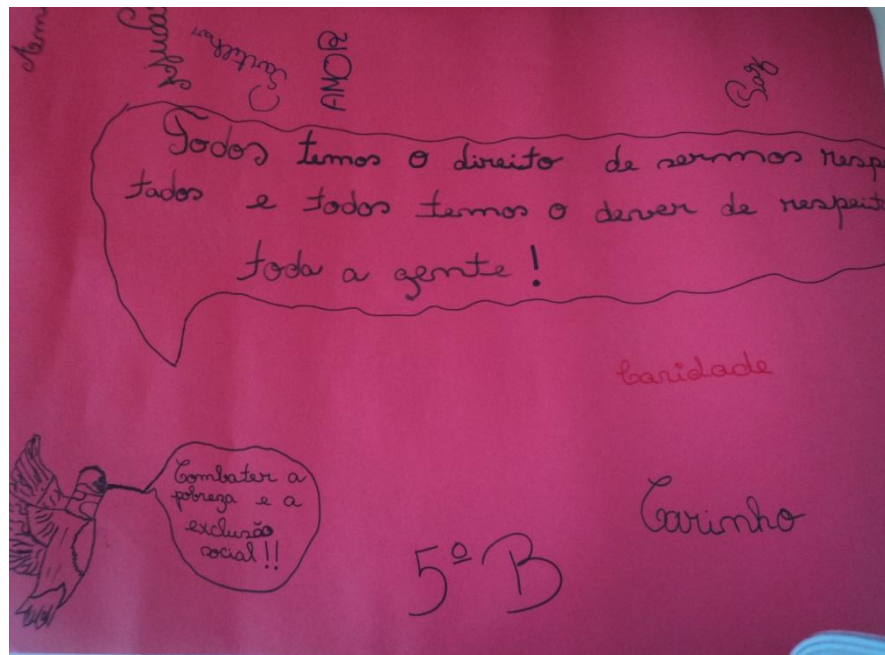 Partilhar
AMOR
Paz
Todos temos o direito de sermos resp
tados e todos temos o dever de respeit
toda a gente!
Caridade
Combater a
pobreza e a
exclusão
social!!
Carinho
5º B